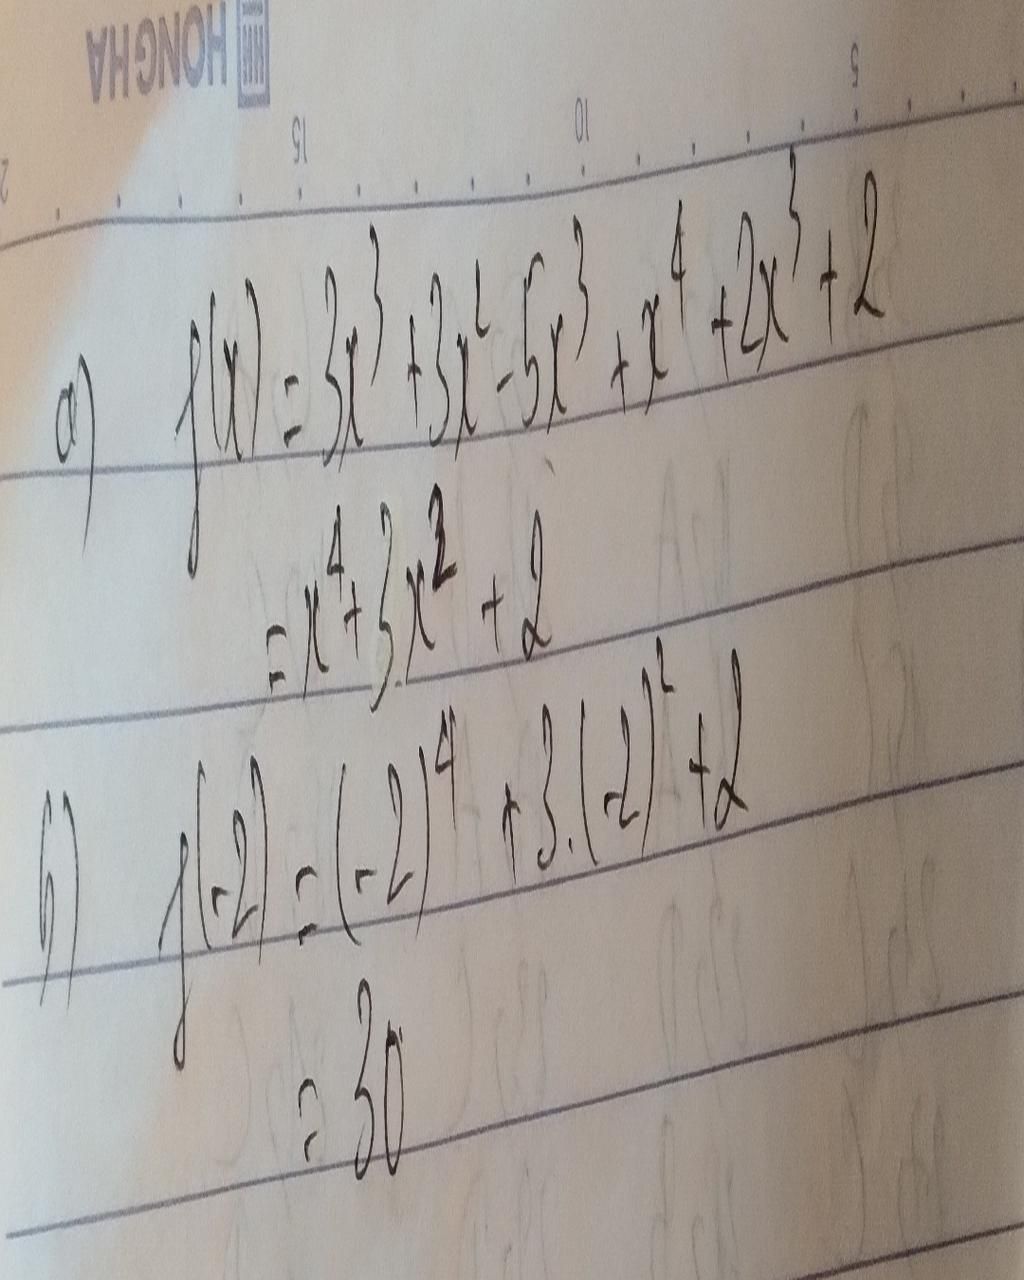 HONG HA
5 10 15 2
a) f(x) = 3x³ + 3x² - 5x³ + x⁴ + 2x³ + 2
= x⁴ + 3x² + 2
b) f(-2) = (-2)⁴ + 3.(-2)² + 2
= 30